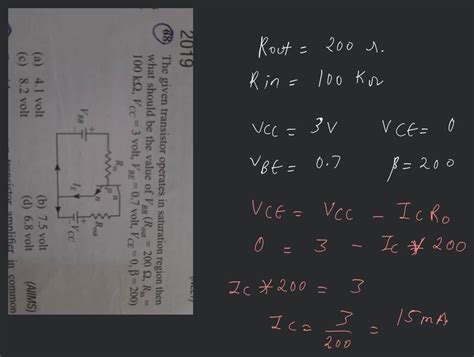 2019
68. The given transistor operates in saturation region then
what should be the value of V_BB (R_out = 200 Ω, R_in =
100 kΩ, V_CC = 3 volt, V_BE = 0.7 volt, V_CE = 0, β = 200)
R_in
R_out
n
P
n
V_BB
I_E
V_CC
(a) 4.1 volt (b) 7.5 volt
(c) 8.2 volt (d) 6.8 volt
(AIIMS)
transistor amplifier in common
Rout = 200 Ω.
Rin = 100 KΩ
VCC = 3V VCE = 0
VBE = 0.7 β = 200
VCE = VCC - ICRO
0 = 3 - IC * 200
IC * 200 = 3
IC = 3/200 = 15 mA